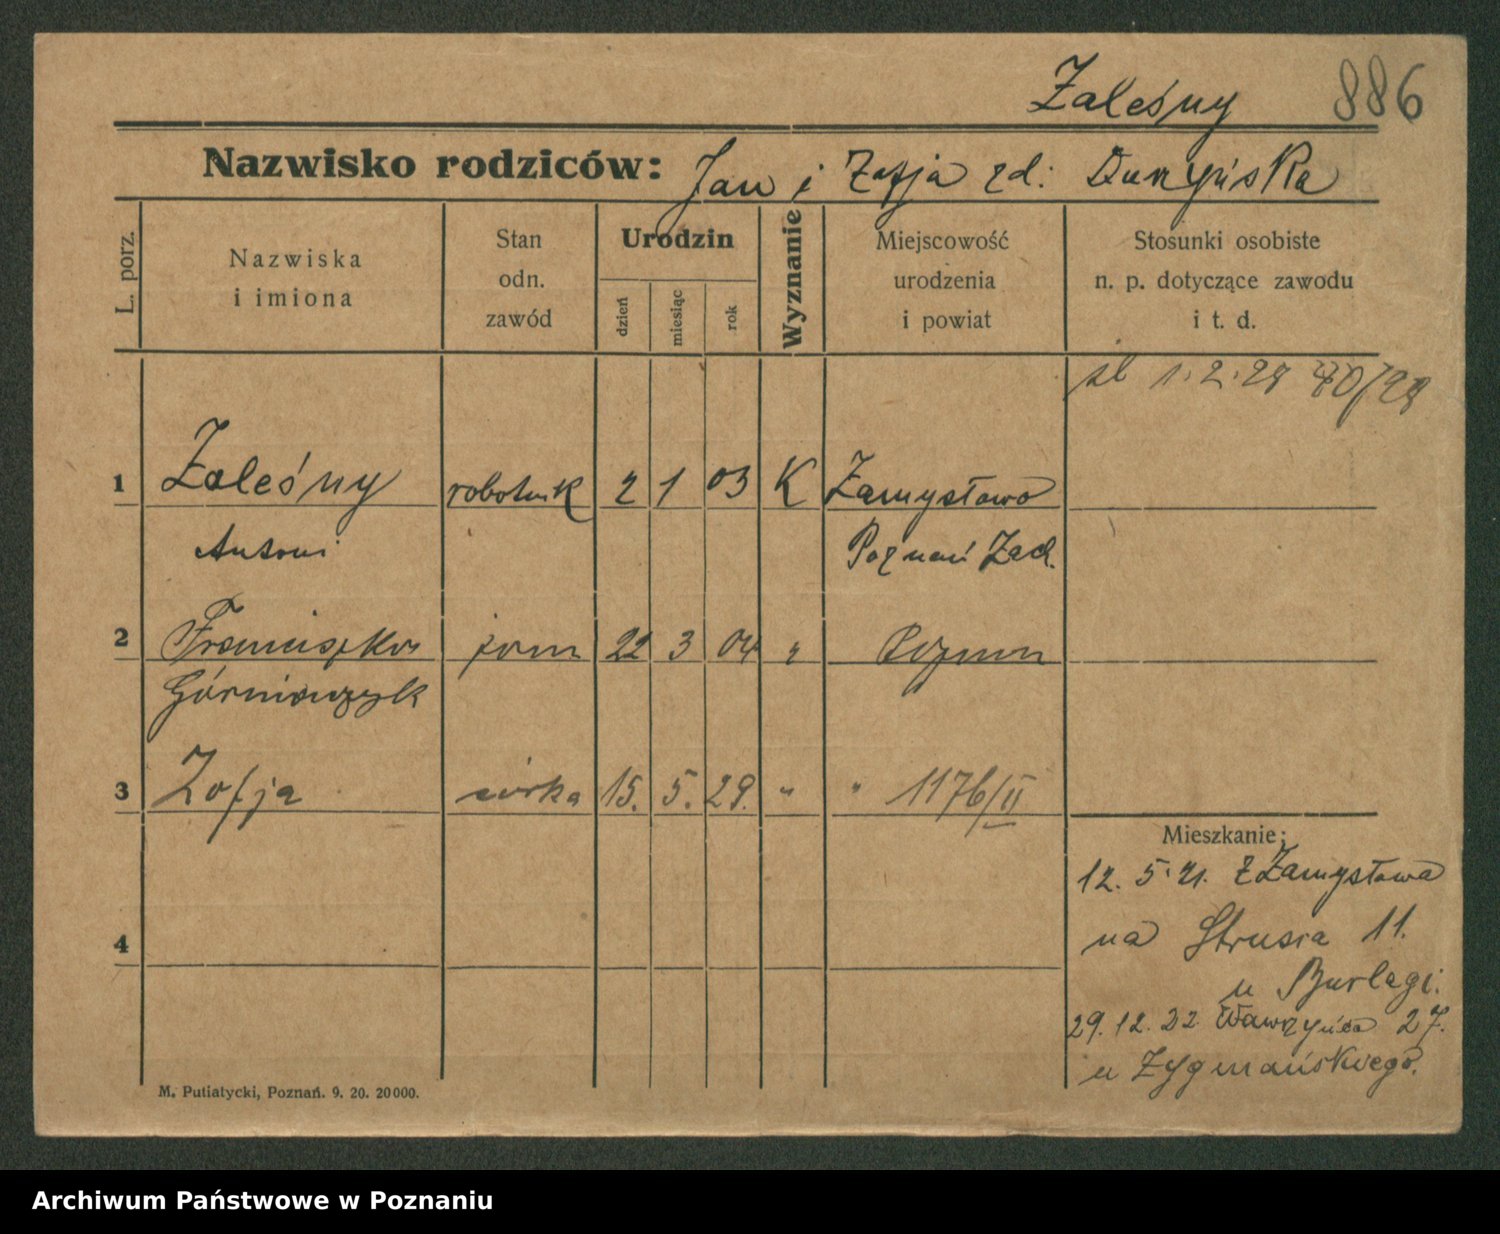 Zaleśny 886
Nazwisko rodziców: Jan i Zofja zd:
L. porz.
Nazwiska
i imiona
Stan
odn.
zawód
Urodzin
dzień
miesiąc
rok
Wyznanie
Miejscowość
urodzenia
i powiat
Stosunki osobiste
n. p. dotyczące zawodu
i t. d.
śl 1.2.28 /28
1 Zaleśny robotnik 2 1 03 K Zamysłowo
Antoni Poznań Zach.
2 Franciszka żona 22 3 04 " Poznań
Górniaczyk
3 Zofja córka 15. 5. 29. " " 1176/II
Mieszkanie:
12. 5. 21. z Zamysłowa
4
na Strusia 11.
u Burlagi.
29. 12. 22 Wawrzyńca 27.
u Zygmańskiego.
M. Putiatycki, Poznań. 9. 20. 20000.
Archiwum Państwowe w Poznaniu